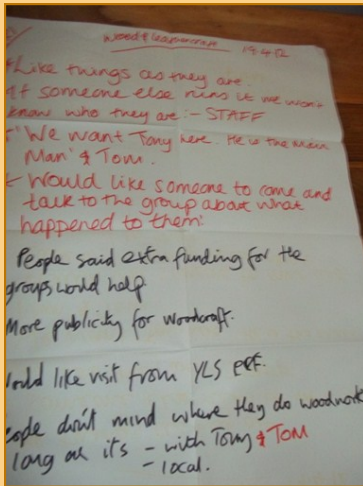 Wood & Leathercraft 19.4.12
Like things as they are.
If someone else runs it we won't
know who they are :- STAFF
'We want Tony here. He is the Main
Man' & Tom.
Would like someone to come and
talk to the group about what
happened to them.
People said extra funding for the
groups would help.
More publicity for woodcraft.
Would like visit from YLS
People don't mind where they do woodwork
long as its - with Tony & TOM
- local.